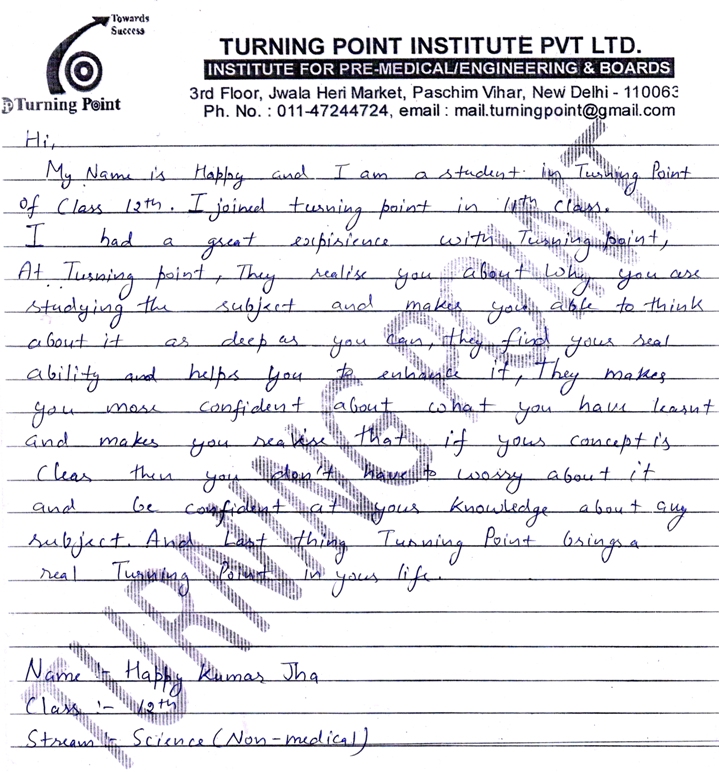 Towards
Success
Turning Point
TURNING POINT INSTITUTE PVT LTD.
INSTITUTE FOR PRE-MEDICAL/ENGINEERING & BOARDS
3rd Floor, Jwala Heri Market, Paschim Vihar, New Delhi - 110063
Ph. No. : 011-47244724, email : mail.turningpoint@gmail.com
Hi,
My Name is Happy and I am a student in Turning Point
of Class 12th. I joined turning point in 11th Class.
I had a great expirience with Turning point,
At Turning point, They realise you about why you are
studying the subject and makes you able to think
about it as deep as you can, they find your real
ability and helps you to enhance it, They makes
you more confident about what you have learnt
and makes you realise that if your concept is
clear then you don't have to worry about it
and be confident at your knowledge about any
subject. And Last thing Turning Point brings a
real Turning Point in your life.
Name :- Happy Kumar Jha
Class :- 12th
Stream :- Science (Non-medical)
TURNING POINT